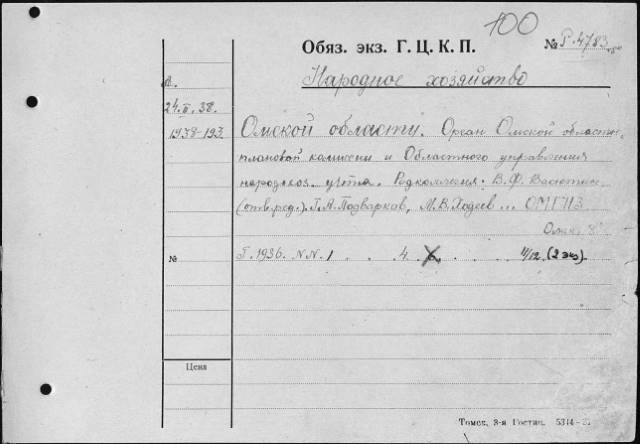 100
Обяз. экз. Г. Ц. К. П. № Р-4783
Народное хозяйство
24. 38.
1938-193
Омской области. Орган Омской област
плановой комиссии и Областного управления
народхоз. учёта. Редколлегия: В.Ф. Васютин
(отв. ред.), Г.А. Подварков, М.В. Ходеев ... ОМГИЗ
Омск, 8°
№ Г. 1936. NN. 1 . . 4 . . . 11/12. (2 экз.)
Цена
Томск, 3-я Гостип. 5314-